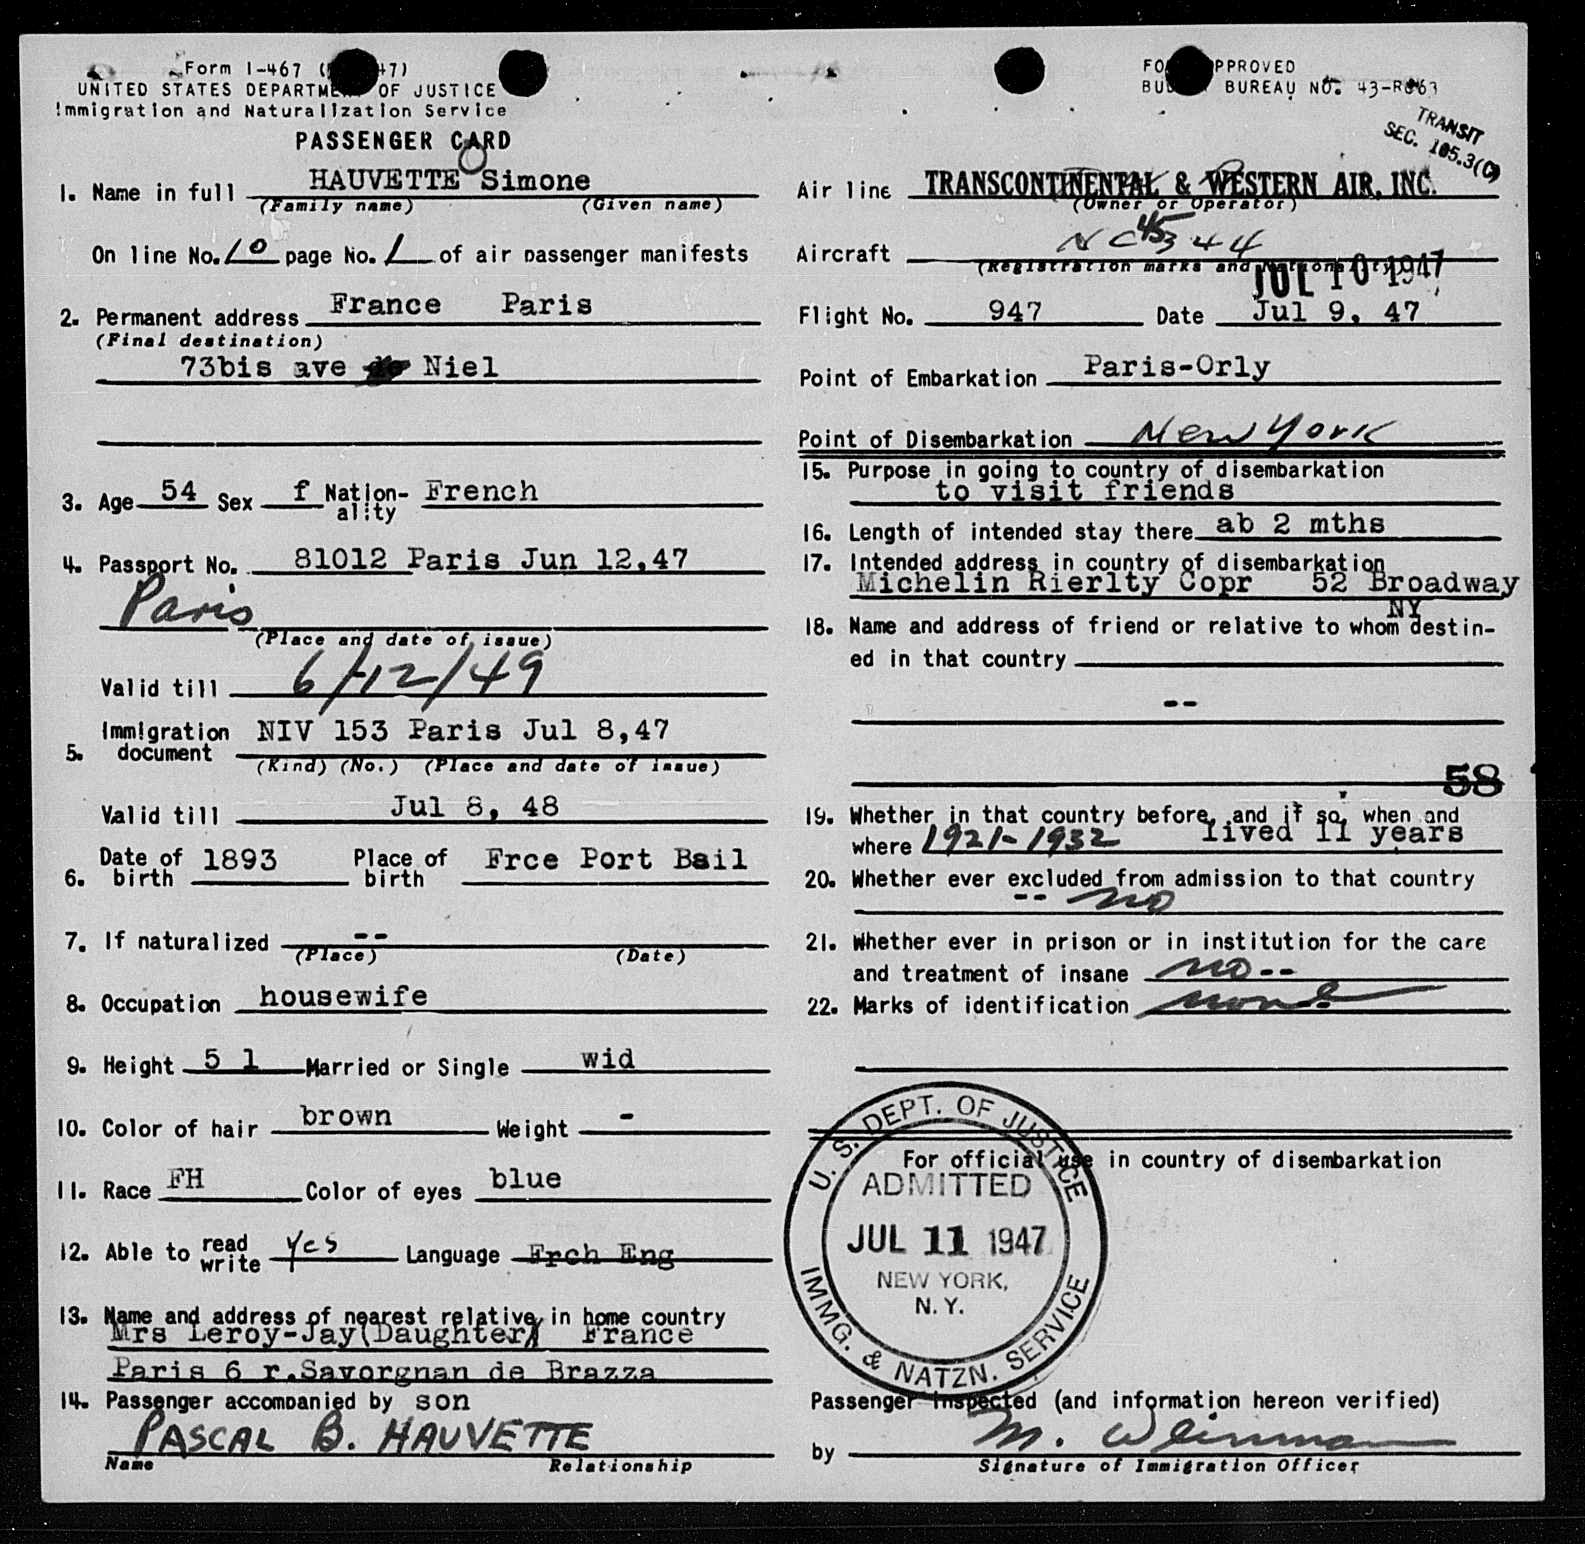 Form I-467 ( 47)
UNITED STATES DEPARTMENT OF JUSTICE
Immigration and Naturalization Service
PASSENGER CARD
1. Name in full HAUVETTE Simone
(Family name) (Given name)
On line No. 10 page No. 1 of air passenger manifests
2. Permanent address France Paris
(Final destination)
73bis ave Niel
3. Age 54 Sex f Nation-ality French
4. Passport No. 81012 Paris Jun 12,47
Paris
(Place and date of issue)
Valid till 6/12/49
5. Immigration document NIV 153 Paris Jul 8,47
(Kind) (No.) (Place and date of issue)
Valid till Jul 8, 48
6. Date of birth 1893 Place of birth Frce Port Bail
7. If naturalized --
(Place) (Date)
8. Occupation housewife
9. Height 5 1 Married or Single wid
10. Color of hair brown Weight -
11. Race FH Color of eyes blue
12. Able to read write Yes Language Frch Eng
13. Name and address of nearest relative in home country
Mrs Leroy-Jay(Daughter) France
Paris 6 r.Savorgnan de Brazza
14. Passenger accompanied by son
PASCAL B. HAUVETTE
Name Relationship
FO PPROVED
BU BUREAU NO. 43-R063
TRANSIT
SEC. 105.3(C)
Air line TRANSCONTINENTAL & WESTERN AIR, INC.
(Owner or Operator)
Aircraft NC 45344
(Registration marks and nationality)
JUL 10 1947
Flight No. 947 Date Jul 9, 47
Point of Embarkation Paris-Orly
Point of Disembarkation New York
15. Purpose in going to country of disembarkation
to visit friends
16. Length of intended stay there ab 2 mths
17. Intended address in country of disembarkation
Michelin Rierlty Copr 52 Broadway
NY
18. Name and address of friend or relative to whom destin-
ed in that country
--
58
19. Whether in that country before, and if so, when and
where 1921-1932 lived 11 years
20. Whether ever excluded from admission to that country
-- no
21. Whether ever in prison or in institution for the care
and treatment of insane no --
22. Marks of identification none --
For official use in country of disembarkation
U. S. DEPT. OF JUSTICE
ADMITTED
JUL 11 1947
NEW YORK,
N.Y.
IMMG. & NATZN. SERVICE
Passenger inspected (and information hereon verified)
by M. Weinman
Signature of Immigration Officer